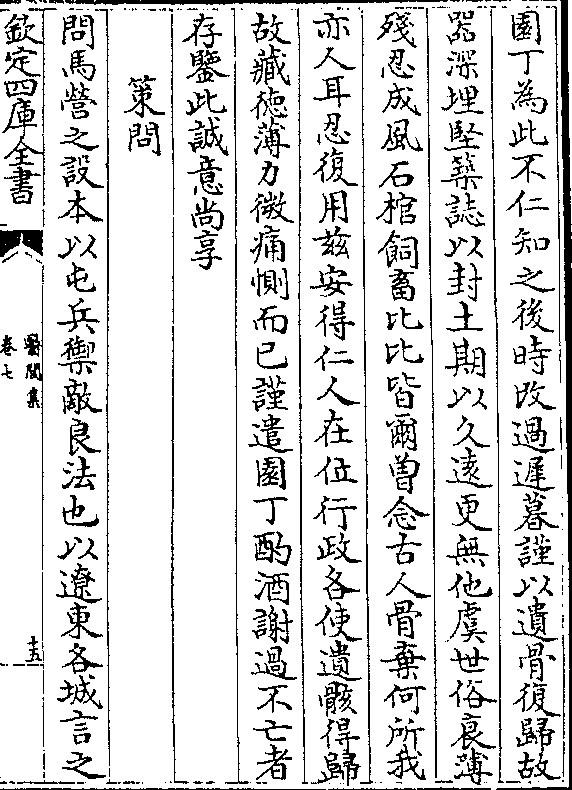 園丁為此不仁知之後時改過遲暮謹以遺骨復歸故
器深埋堅築誌以封土期以久遠更無他虞世俗衰薄
殘忍成風石棺飼畜比比皆爾曽念古人骨棄何所我
亦人耳忍復用兹安得仁人在位行政各使遺骸得歸
故藏徳薄力微痛惻而已謹遣園丁酌酒謝過不亡者
存鑒此誠意尚享
策問
問馬營之設本以屯兵禦敵良法也以遼東各城言之
欽定四庫全書
醫閭集
卷七
十五